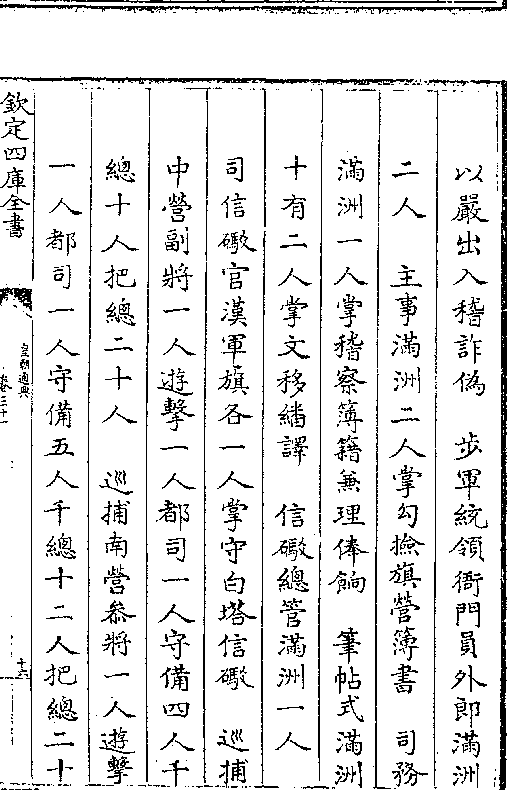 以嚴出入稽詐偽　步軍統領衙門員外郎滿洲
二人　主事滿洲二人掌勾撿旗營簿書　司務
滿洲一人掌稽察簿籍兼理俸餉　筆帖式滿洲
十有二人掌文移繙譯　信礮總管滿洲一人
司信礮官漢軍旗各一人掌守白塔信礮　巡捕
中營副將一人遊擊一人都司一人守備四人千
總十人把總二十人　巡捕南營叅將一人遊擊
一人都司一人守備五人千總十二人把總二十
欽定四庫全書
皇朝通典
卷三十一
十六